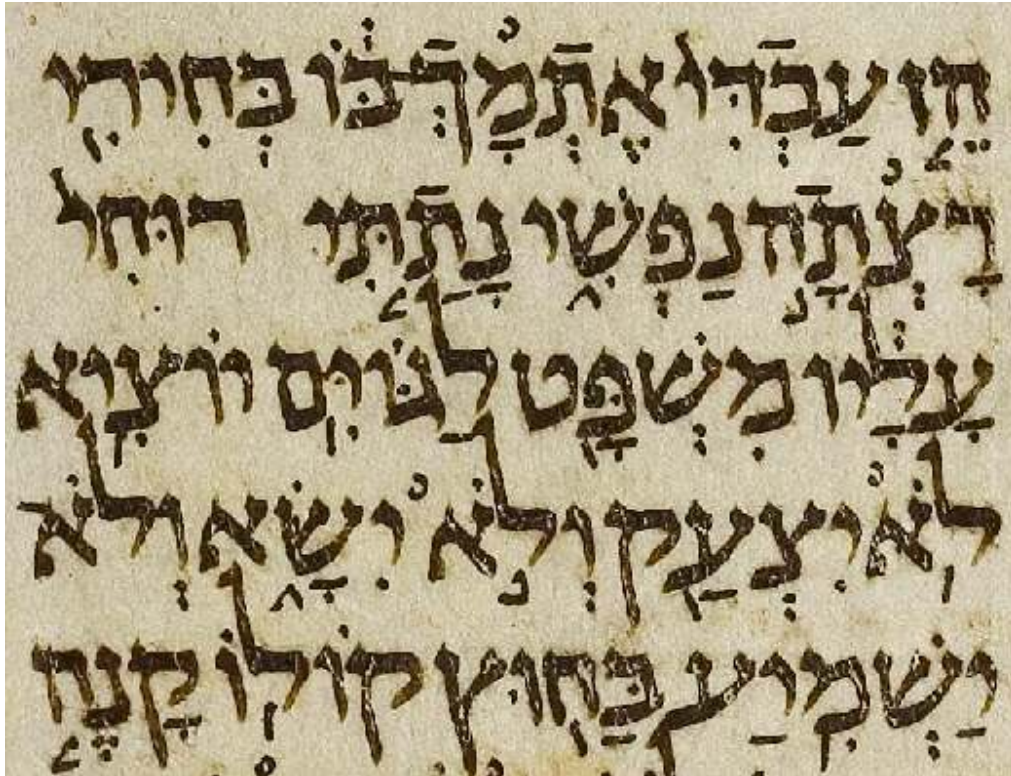 הֵ֤ן עַבְדִּי֙ אֶתְמָךְ־בּ֔וֹ בְּחִירִ֖י
רָצְתָ֣ה נַפְשִׁ֑י נָתַ֤תִּי רוּחִי֙
עָלָ֔יו מִשְׁפָּ֖ט לַגּוֹיִ֥ם יוֹצִֽיא
לֹ֥א יִצְעַ֖ק וְלֹ֣א יִשָּׂ֑א וְלֹא
יַשְׁמִ֥יעַ בַּח֖וּץ קוֹלֽוֹ קָנֶ֤ה